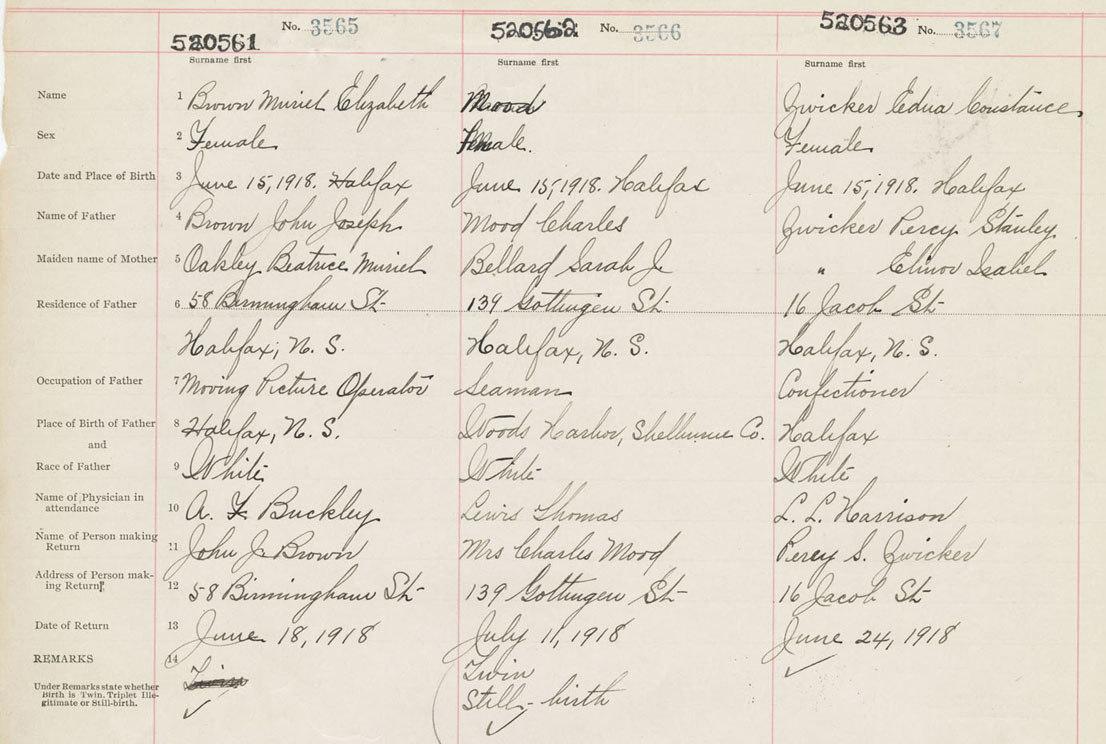 No. 3565 No. 3566 No. 3567
520561 520562 520563
Surname first Surname first Surname first
Name 1 Brown Muriel Elizabeth Mood Zwicker Edna Constance
Sex 2 Female Female. Female
Date and Place of Birth 3 June 15, 1918. Halifax June 15, 1918. Halifax June 15, 1918. Halifax
Name of Father 4 Brown John Joseph Mood Charles Zwicker Percy Stanley
Maiden name of Mother 5 Oakley Beatrice Muriel Bellard Sarah J " Elinor Isabel
Residence of Father 6 58 Birmingham St 139 Gottingen St 16 Jacob St
Halifax, N. S. Halifax, N. S. Halifax, N. S.
Occupation of Father 7 Moving Picture Operator Seaman Confectioner
Place of Birth of Father 8 Halifax, N. S. Woods Harbor, Shelburne Co. Halifax
and
Race of Father 9 White White White
Name of Physician in
attendance 10 A. F. Buckley Lewis Thomas L. L. Harrison
Name of Person making
Return 11 John J. Brown Mrs Charles Mood Percy S. Zwicker
Address of Person mak-
ing Return 12 58 Birmingham St 139 Gottingen St 16 Jacob St
Date of Return 13 June 18, 1918 July 11, 1918 June 24, 1918
REMARKS 14 Twin Twin
Under Remarks state whether
Birth is Twin, Triplet Ille-
gitimate or Still-birth. Still-birth